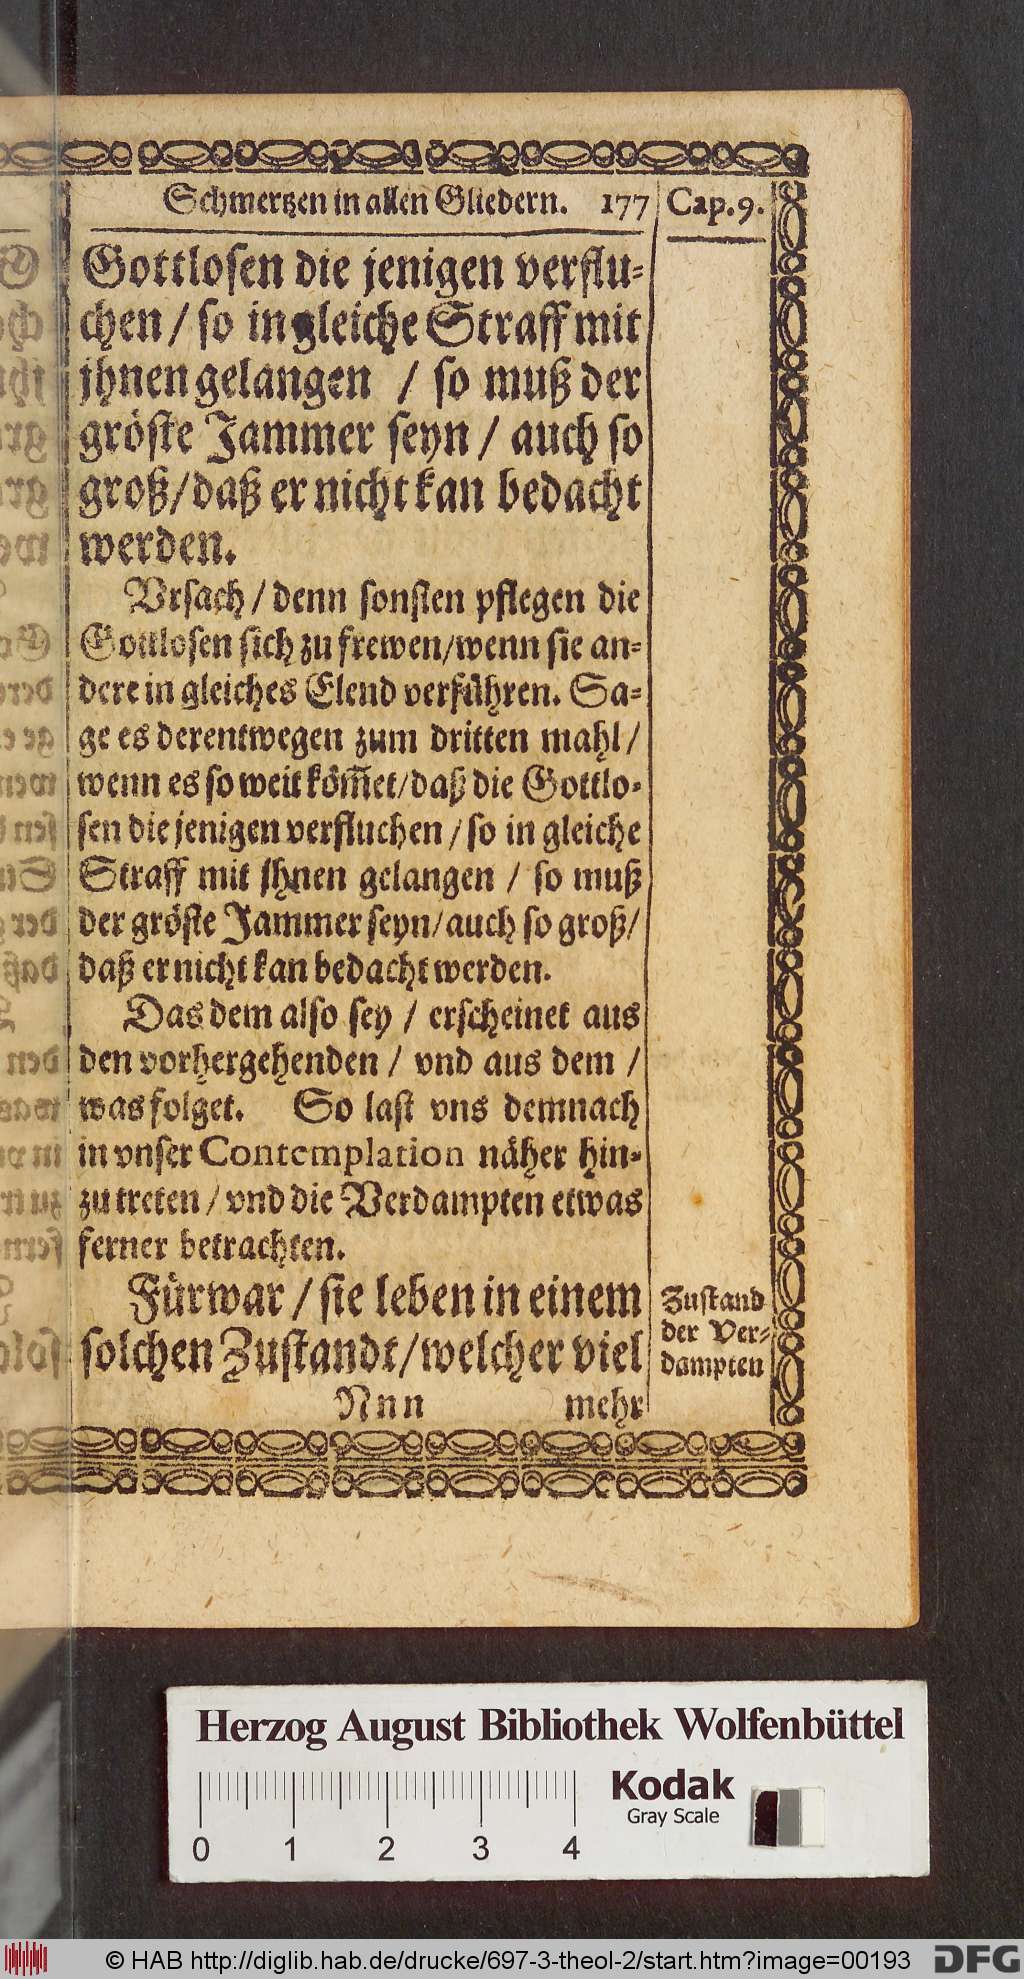 Schmertzen in allen Gliedern. 177 Cap. 9.
Gottlosen die jenigen verflu-
chen / so in gleiche Straff mit
jhnen gelangen / so muß der
gröste Jammer seyn / auch so
groß / daß er nicht kan bedacht
werden.
Vrsach / denn sonsten pflegen die
Gottlosen sich zu frewen / wenn sie an-
dere in gleiches Elend verführen. Sa-
ge es derentwegen zum dritten mahl /
wenn es so weit köm̃et / daß die Gottlo-
sen die jenigen verfluchen / so in gleiche
Straff mit Ihnen gelangen / so muß
der gröste Jammer seyn / auch so groß /
daß er nicht kan bedacht werden.
Das dem also sey / erscheinet aus
den vorhergehenden / vnd aus dem /
was folget. So last vns demnach
in vnser Contemplation näher hin-
zu treten / vnd die Verdampten etwas
ferner betrachten.
Fürwar / sie leben in einem
solchen Zustandt / welcher viel
Zustand
der Ver-
dampten
Nnn mehr
Herzog August Bibliothek Wolfenbüttel
Kodak
Gray Scale
0 1 2 3 4
© HAB http://diglib.hab.de/drucke/697-3-theol-2/start.htm?image=00193
DFG